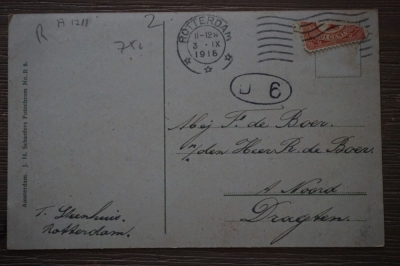 R
A 1211
2
ROTTERDAM
11-12
3 - IX
1916
CENT
6
Mej F. de Boer.
den Heer R. de Boer.
A Noord
Dragten.
T. Steenhuis.
Rotterdam.
Amsterdam. J. H. Schaefer's Fotochrom No. R 8.